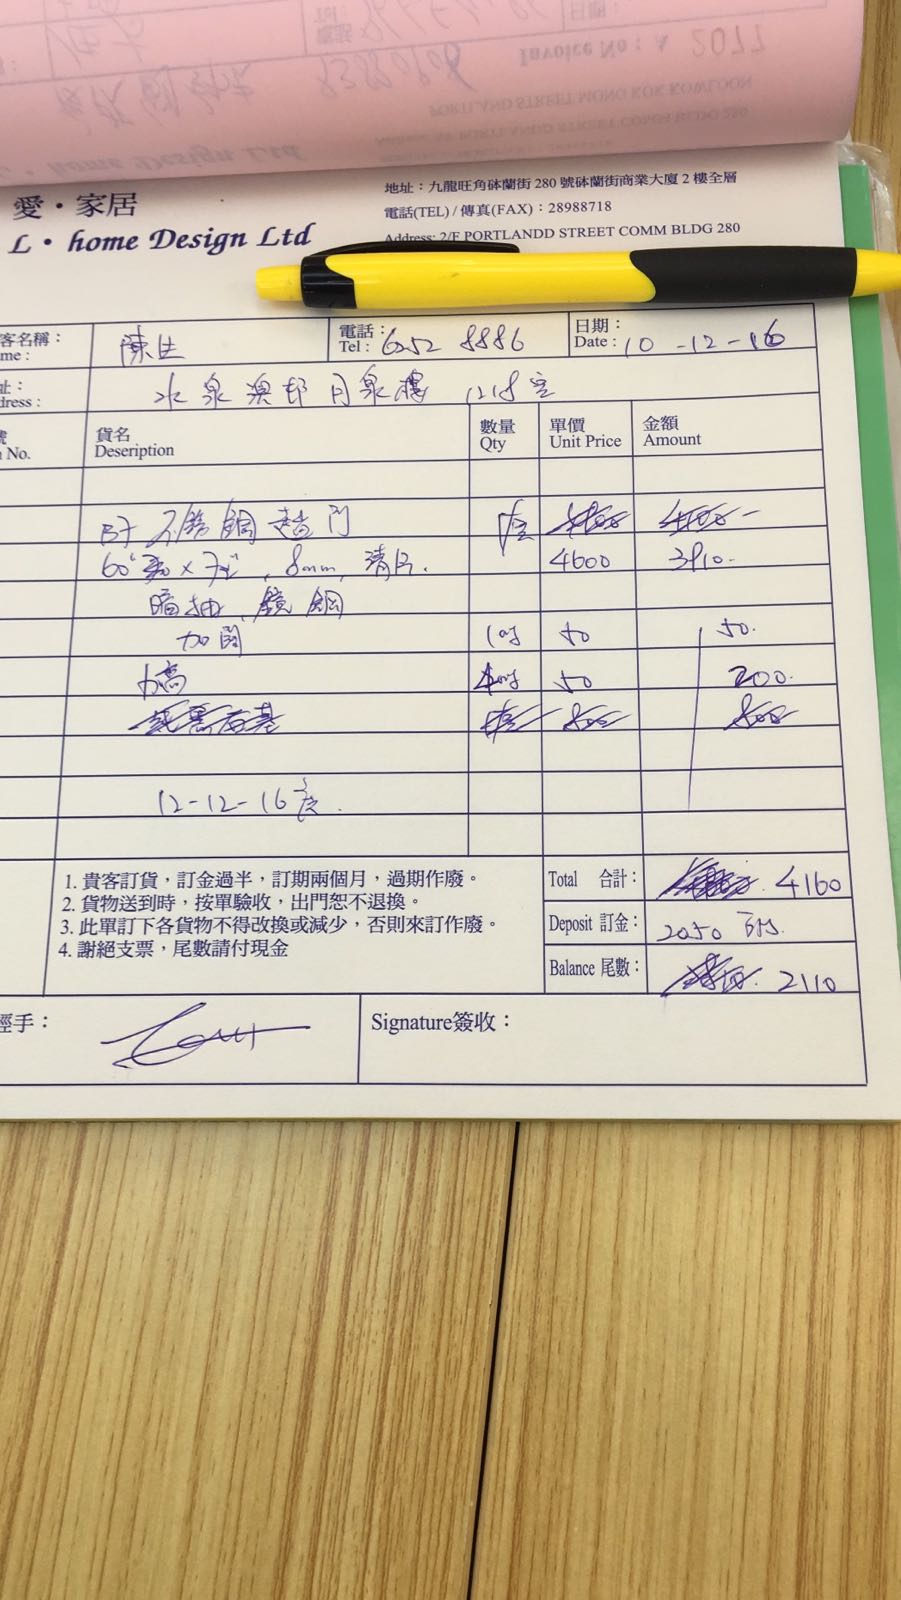 Invoice No : A 2077
愛・家居
L・home Design Ltd
地址：九龍旺角砵蘭街 280 號砵蘭街商業大廈 2 樓全層
電話(TEL) / 傳真(FAX)：28988718
Address: 2/F PORTLANDD STREET COMM BLDG 280
客名稱： 陳生 電話： Tel : 6252 8886 日期： Date : 10-12-16
水泉澳邨月泉樓 1218室
No. 貨名 Deseription 數量 Qty 單價 Unit Price 金額 Amount
不銹鋼趟門
60" x 72", 8mm, 清片. 4600 3910.
暗抽 鏡鋼
加闊 1吋 50 50.
加高 4吋 50 200.
12-12-16度.
1. 貴客訂貨，訂金過半，訂期兩個月，過期作廢。
2. 貨物送到時，按單驗收，出門恕不退換。
3. 此單訂下各貨物不得改換或減少，否則來訂作廢。
4. 謝絕支票，尾數請付現金
Total 合計： 4160
Deposit 訂金： 2050
Balance 尾數： 2110
經手：
Signature簽收：